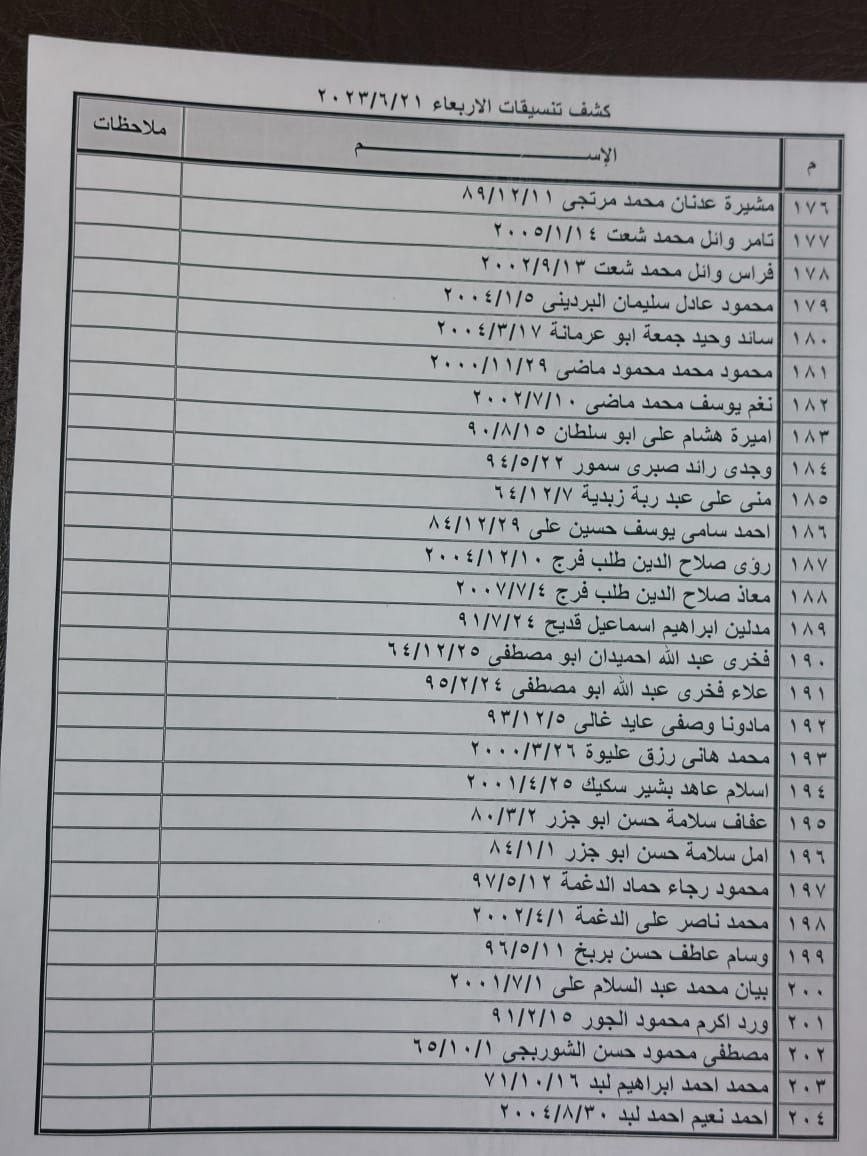 كشف تنسيقات الاربعاء ٢٠٢٣/٦/٢١
م الإســـــــــم ملاحظات
١٧٦ مشيرة عدنان محمد مرتجى ٨٩/١٢/١١
١٧٧ تامر وائل محمد شعت ٢٠٠٥/١/١٤
١٧٨ فراس وائل محمد شعت ٢٠٠٢/٩/١٣
١٧٩ محمود عادل سليمان البردينى ٢٠٠٤/١/٥
١٨٠ سائد وحيد جمعة ابو عرمانة ٢٠٠٤/٣/١٧
١٨١ محمود محمد محمود ماضى ٢٠٠٠/١١/٢٩
١٨٢ نغم يوسف محمد ماضى ٢٠٠٢/٧/١٠
١٨٣ اميرة هشام على ابو سلطان ٩٠/٨/١٥
١٨٤ وجدى رائد صبرى سمور ٩٤/٥/٢٢
١٨٥ منى على عبد ربة زبدية ٦٤/١٢/٧
١٨٦ احمد سامى يوسف حسين على ٨٤/١٢/٢٩
١٨٧ رؤى صلاح الدين طلب فرج ٢٠٠٤/١٢/١٠
١٨٨ معاذ صلاح الدين طلب فرج ٢٠٠٧/٧/٤
١٨٩ مدلين ابراهيم اسماعيل قديح ٩١/٧/٢٤
١٩٠ فخرى عبد الله احميدان ابو مصطفى ٦٤/١٢/٢٥
١٩١ علاء فخرى عبد الله ابو مصطفى ٩٥/٢/٢٤
١٩٢ مادونا وصفى عايد غالى ٩٣/١٢/٥
١٩٣ محمد هانى رزق عليوة ٢٠٠٠/٣/٢٦
١٩٤ اسلام عاهد بشير سكيك ٢٠٠١/٤/٢٥
١٩٥ عفاف سلامة حسن ابو جزر ٨٠/٣/٢
١٩٦ امل سلامة حسن ابو جزر ٨٤/١/١
١٩٧ محمود رجاء حماد الدغمة ٩٧/٥/١٢
١٩٨ محمد ناصر على الدغمة ٢٠٠٢/٤/١
١٩٩ وسام عاطف حسن بربخ ٩٦/٥/١١
٢٠٠ بيان محمد عبد السلام على ٢٠٠١/٧/١
٢٠١ ورد اكرم محمود الجور ٩١/٢/١٥
٢٠٢ مصطفى محمود حسن الشوربجى ٦٥/١٠/١
٢٠٣ محمد احمد ابراهيم لبد ٧١/١٠/١٦
٢٠٤ احمد نعيم احمد لبد ٢٠٠٤/٨/٣٠